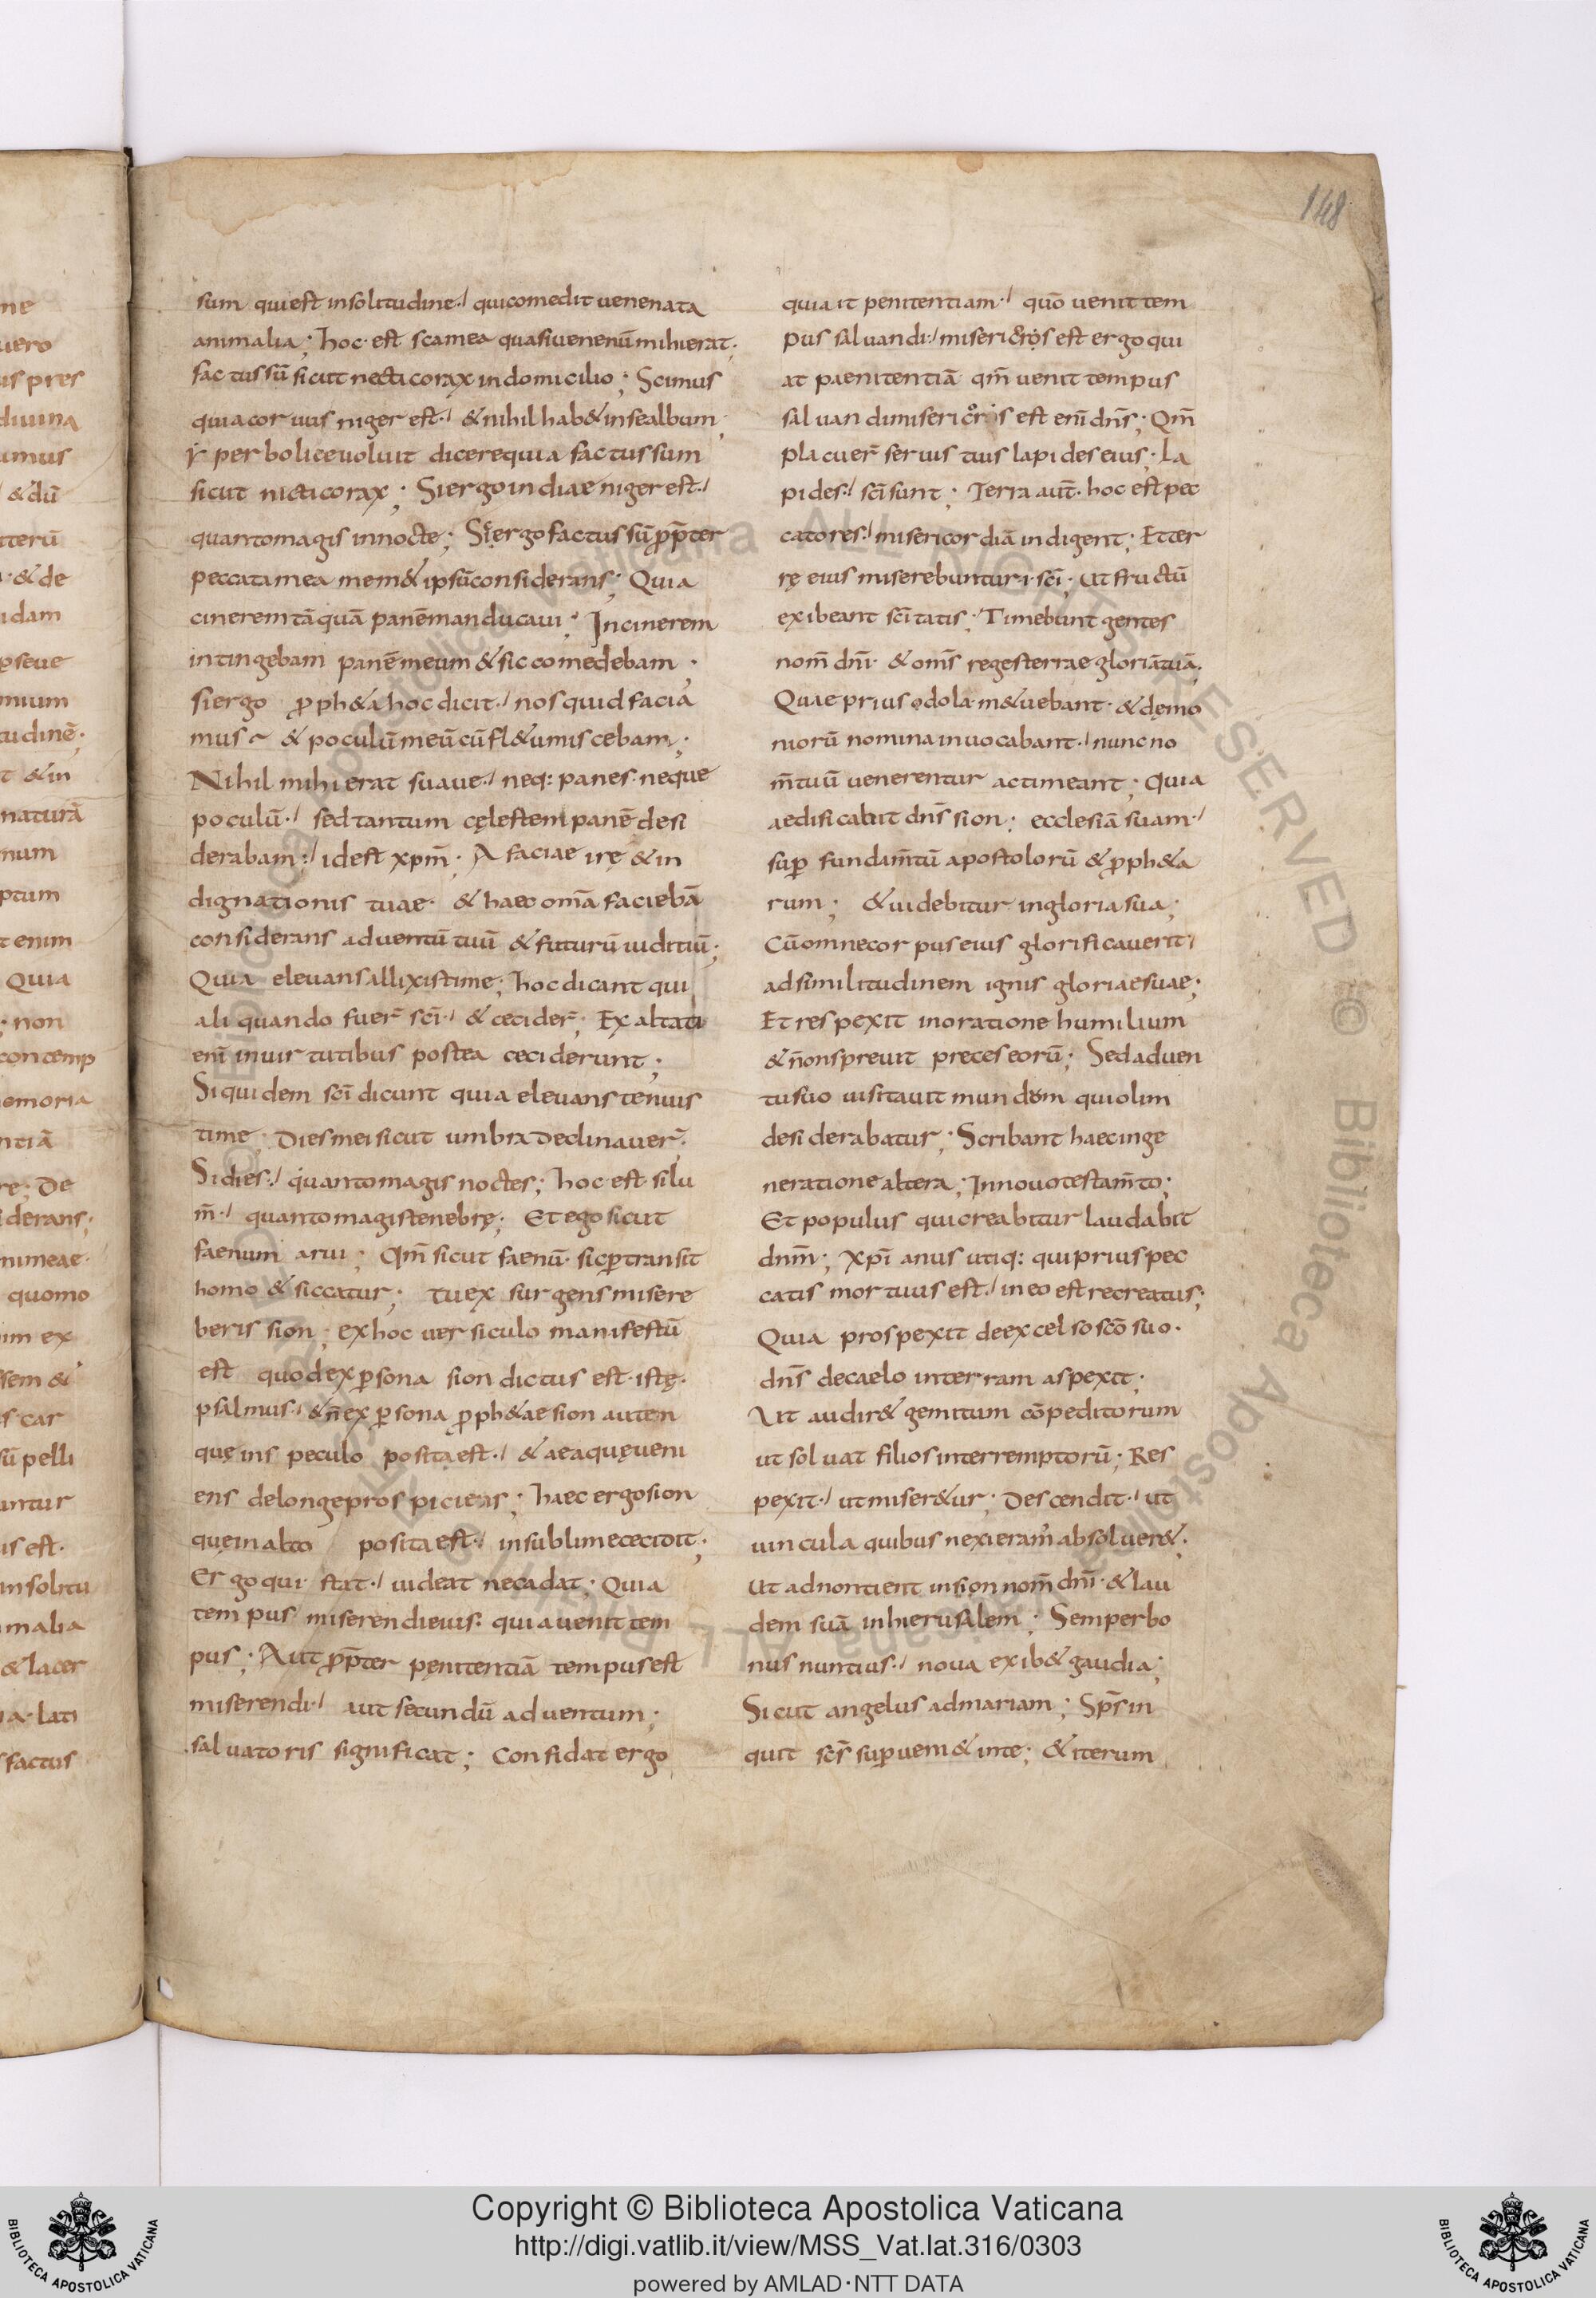 148
sum qui est insolitudine·/ quicomedit uenenata
animalia; hoc· est scamea quasiuenenū mihierat·
factussū sicut necticorax indomicilio; Scimus
quiacoruus niger est·/ & nihil hab& insealbum·
perbolice uoluit dicerequia factussum
sicut nicticorax; Siergo indiae niger est·/
quantomagis innocte; Siergo factus sū pp̄ter
peccatamea mem& ipsū considerans; Quia
cineremtāquā panē manducaui; Incinerem
intingebam panē meum & sic comedebam;
siergo pph&a hoc dicit·/ nos quid facia
mus & poculū meū cū fl&umiscebam;
Nihil mihi erat suaue·/ neq: panes neque
poculū·/ sed tantum cęlestem panē desi
derabam:/ idest xpm̄; A faciae irę & in
dignationis tuae· & haec omā faciebā
considerans aduentū tuū & futurū iuditiū;
Quia eleuans allixistime; hoc dicant qui
aliquando fuer̄ sci·/ & cecider̄; Exaltati
eni inuirtutibus postea ceciderunt;
Siquidem sci dicunt quia eleuans tenuis
time; Dies mei sicut umbra declinauer̄·
Si dies·/ quantomagis noctes; hoc· est silu
m̄·/ quantomagis tenebrę; Et ego sicut
faenum arui; Qm̄ sicut faenū· sic ptransit
homo & siccatur; tu exsurgens misere
beris sion; ex hoc uersiculo manifestū
est quod ex psona sion dictus est· istę·
psalmus·/ & n̄ ex psona pph&ae sion autem
quę inspeculo posita est·/ & aeaquę ueni
ens delonge prospiciens; haec ergo sion
quę inalto posita est·/ insublime cecidit;
Ergo qui stat·/ uideat ne cadat; Quia
tempus miserendi eius· quia uenit tem
pus; Aut pp̄ter penitentiā tempus est
miserendi·/ aut secundū aduentum;
saluatoris significat; Confidat ergo
quia it penitentiam·/ quō uenit tem
pus saluandi·/ misericors est ergo qui
at paenitentiā qm̄ uenit tempus
saluandi misericors est eni dn̄s; Qm̄
placuer̄ seruis tuis lapides eius; La
pides·/ sci sunt; Terra aut̄· hoc est pec
catores·/ misericordiā indigent; Et ter
rę eius miserebuntur· i· sci· ut fructū
exibeant sci tatis; Timebunt gentes
nom̄ dn̄i· & om̄s reges terrae gloriā tuā·
Quae prius ędola m&uebant· & demo
niorū nomina inuocabant·/ nunc no
m̄ tuū uenerentur ac timeant; Quia
aedificabit dn̄s sion; ecclesiā suam·/
sup fundam̄tū apostolorū & pph&a
rum; & uidebitur in gloria sua;
Cū omne corpus eius glorificauerit·/
adsimilitudinem ignis gloriae suae;
Et respexit inoratione humilium
& n̄ onspreuit preces eorū; Sed aduen
tu suo uisitauit mundom qui olim
desiderabatur; Scribant haec inge
neratione altera; In nouo testam̄to;
Et populus qui creabitur laudabit
dn̄m; Xpi anus utiq: qui prius pec
catis mortuus est·/ in eo est recreatus;
Quia prospexit de excelso scō suo·
dn̄s de caelo interram aspexit;
Ut audir& gemitum cōpeditorum
ut soluat filios interremptorū; Res
pexit·/ ut miser&ur; Descendit·/ ut
uincula quibus nexi eram absoluer&;
Ut adnontient in sion nom̄ dn̄i· & lau
dem suā in hierusalem; Semper bo
nus nuntius·/ noua exib& gaudia;
Sicut angelus ad mariam; Sps̄ in
quit sc̄s sup ueni& inte; & iterum
Copyright © Biblioteca Apostolica Vaticana
http://digi.vatlib.it/view/MSS_Vat.lat.316/0303
powered by AMLAD·NTT DATA